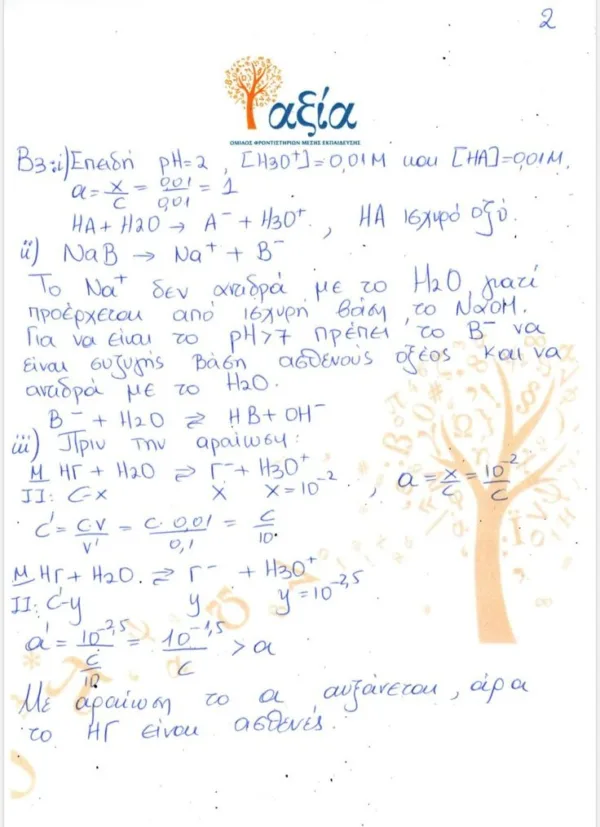 2
αξία
ΟΜΙΛΟΣ ΦΡΟΝΤΙΣΤΗΡΙΩΝ ΜΕΣΗΣ ΕΚΠΑΙΔΕΥΣΗΣ
B3: i) Επειδή pH=2, [H3O+]=0,01M και [HA]=0,01M.
a = x/c = 0,01/0,01 = 1
HA + H2O → A⁻ + H3O⁺, HA ισχυρό οξύ.
ii) NaB → Na⁺ + B⁻
Το Na⁺ δεν αντιδρά με το H2O, γιατί
προέρχεται από ισχυρή βάση το NaOH.
Για να είναι το pH>7 πρέπει το B⁻ να
είναι συζυγής βάση ασθενούς οξέος και να
αντιδρά με το H2O.
B⁻ + H2O ⇌ HB + OH⁻
iii) Πριν την αραίωση:
M HΓ + H2O ⇌ Γ⁻ + H3O⁺
II: C-x x x=10⁻², a = x/c = 10⁻²/c
C' = C·V/V' = C·0,01/0,1 = C/10
M HΓ + H2O ⇌ Γ⁻ + H3O⁺
II: C'-y y y=10⁻²,⁵
a' = 10⁻²,⁵/(c/10) = 10⁻¹,⁵/c > a
Με αραίωση το α αυξάνεται, άρα
το HΓ είναι ασθενές.